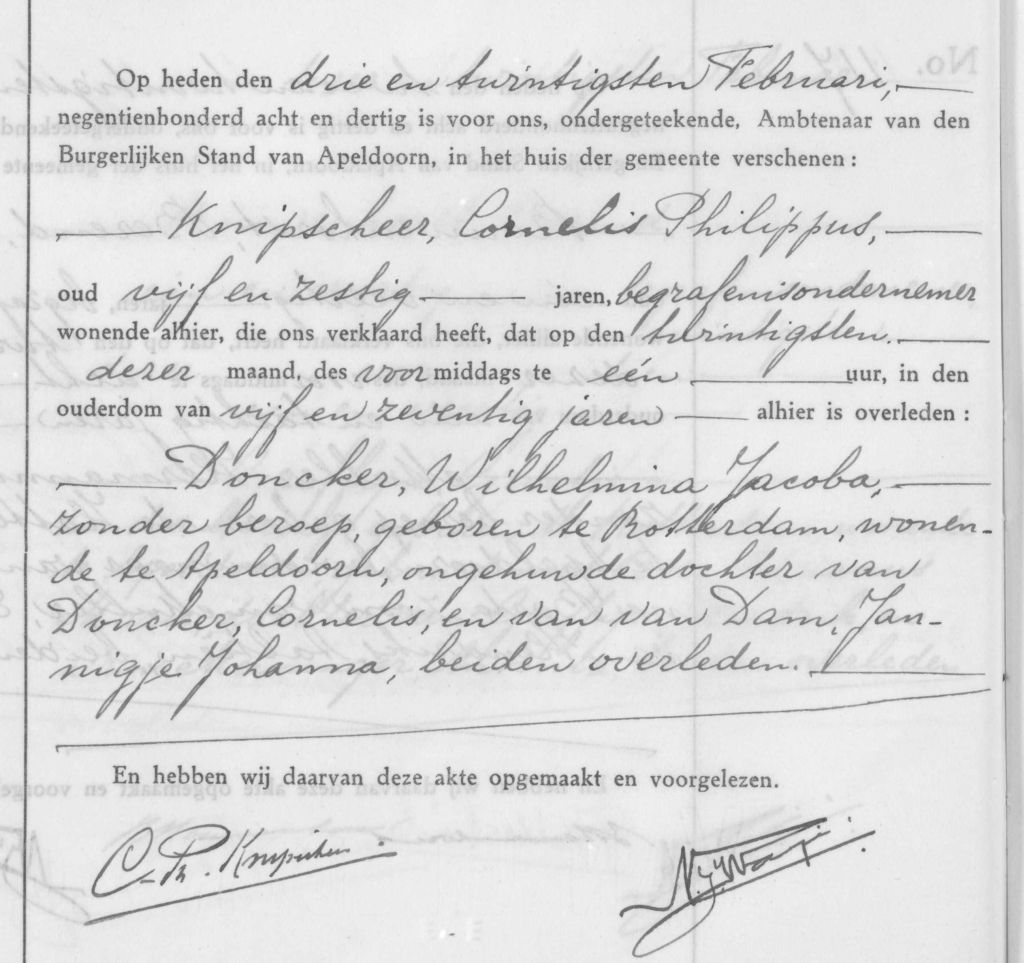 Op heden den drie en twintigsten Februari,
negentienhonderd acht en dertig is voor ons, ondergeteekende, Ambtenaar van den
Burgerlijken Stand van Apeldoorn, in het huis der gemeente verschenen :
Knipscheer, Cornelis Philippus,
oud vijf en zestig jaren, begrafenisondernemer
wonende alhier, die ons verklaard heeft, dat op den twintigsten
dezer maand, des voormiddags te één uur, in den
ouderdom van vijf en zeventig jaren alhier is overleden :
Doncker, Wilhelmina Jacoba,
zonder beroep, geboren te Rotterdam, wonen-
de te Apeldoorn, ongehuwde dochter van
Doncker, Cornelis, en van van Dam, Jan-
nigje Johanna, beiden overleden.
En hebben wij daarvan deze akte opgemaakt en voorgelezen.
C. Ph. Knipscheer
No.